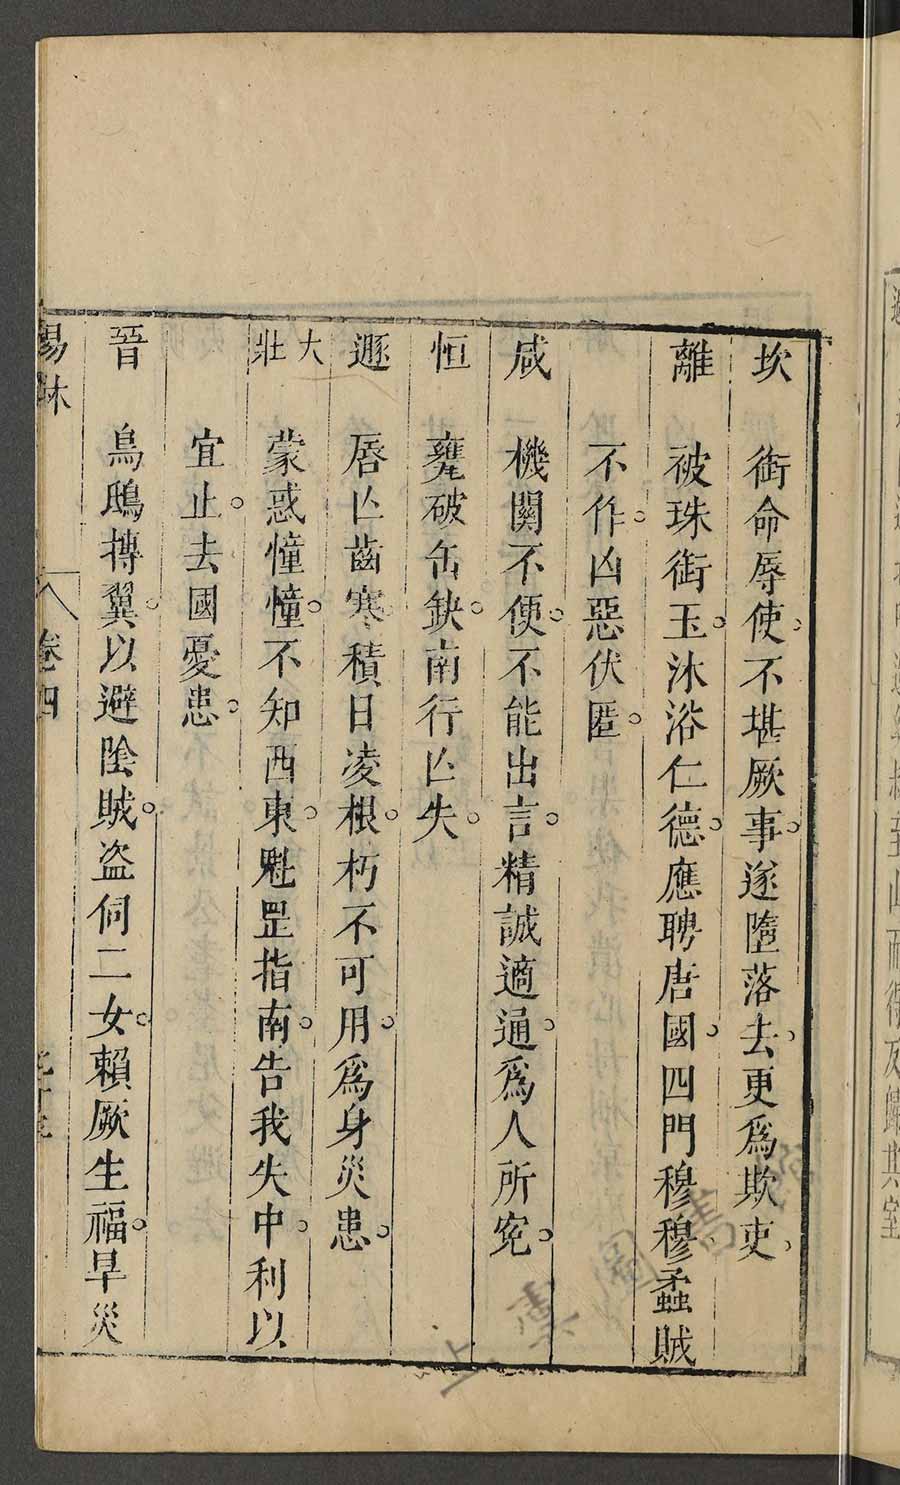 坎 銜命辱使不堪厥事遂墮落去更爲欺吏
離 被珠銜玉沐浴仁德應聘唐國四門穆穆蟊賊
不作凶惡伏匿
咸 機關不便不能出言精誠適通爲人所寃
恒 甕破缶缺南行亾失
遯 唇亾齒寒積日凌根朽不可用爲身災患
大壯 蒙惑憧憧不知西東魁罡指南告我失中利以
宜止去國憂患
晉 鳥鴟搏翼以避陰賊盗伺二女賴厥生福旱災
易林 卷四